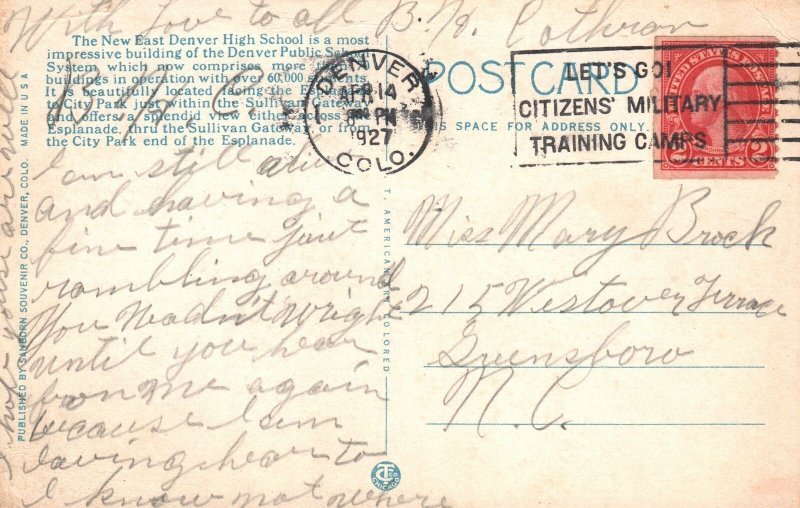 With love to all B. H. Cothran
The New East Denver High School is a most
impressive building of the Denver Public School
System, which now comprises more than
buildings in operation with over 60,000 students.
It is beautifully located facing the Esplanade
to City Park just within the Sullivan Gateway
and offers a splendid view either across the
Esplanade, thru the Sullivan Gateway, or from
the City Park end of the Esplanade.
B. H. C.
I am still alive
and having a
fine time just
rambling around
You Neadn't Wright
until you hear
from me again
because I am
leaving hear to
I know not where
I hope youse are well
PUBLISHED BY SANBORN SOUVENIR CO., DENVER, COLO. MADE IN U S A
C. T. AMERICAN ART COLORED
DENVER
APR 14
8 PM
1927
COLO.
POST CARD
THIS SPACE FOR ADDRESS ONLY
LET'S GO!
CITIZENS' MILITARY
TRAINING CAMPS
UNITED STATES POSTAGE
2 CENTS 2
Miss Mary Brock
215 Westover Terrace
Greensboro
N. C.
CT CO.
CHICAGO